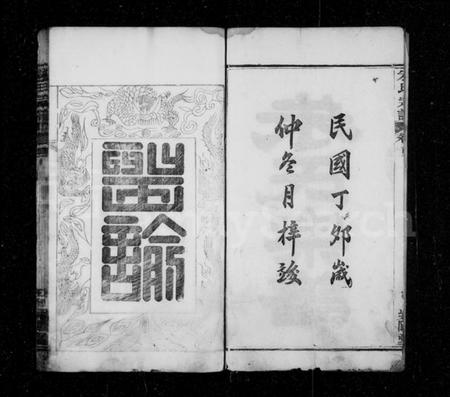 民國丁卯歲
仲冬月梓竣
聖諭